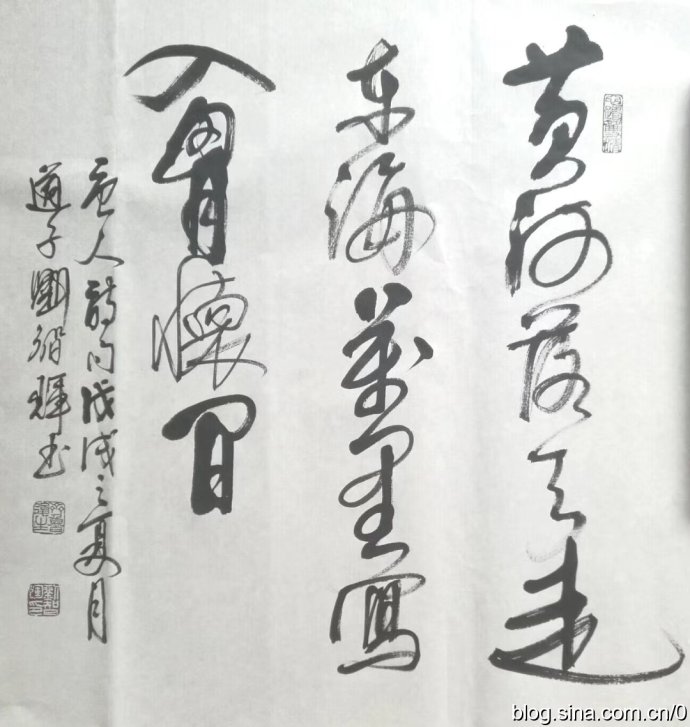 黄河落天走
东海萬里寫
入胷懷间
唐人詩句戊戌之夏月
道子劉智輝书
blog.sina.com.cn/0